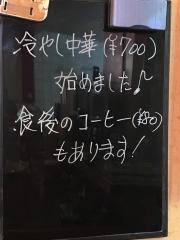 冷やし中華(¥700)
始めました♪
食後のコーヒー(¥80)
もあります!